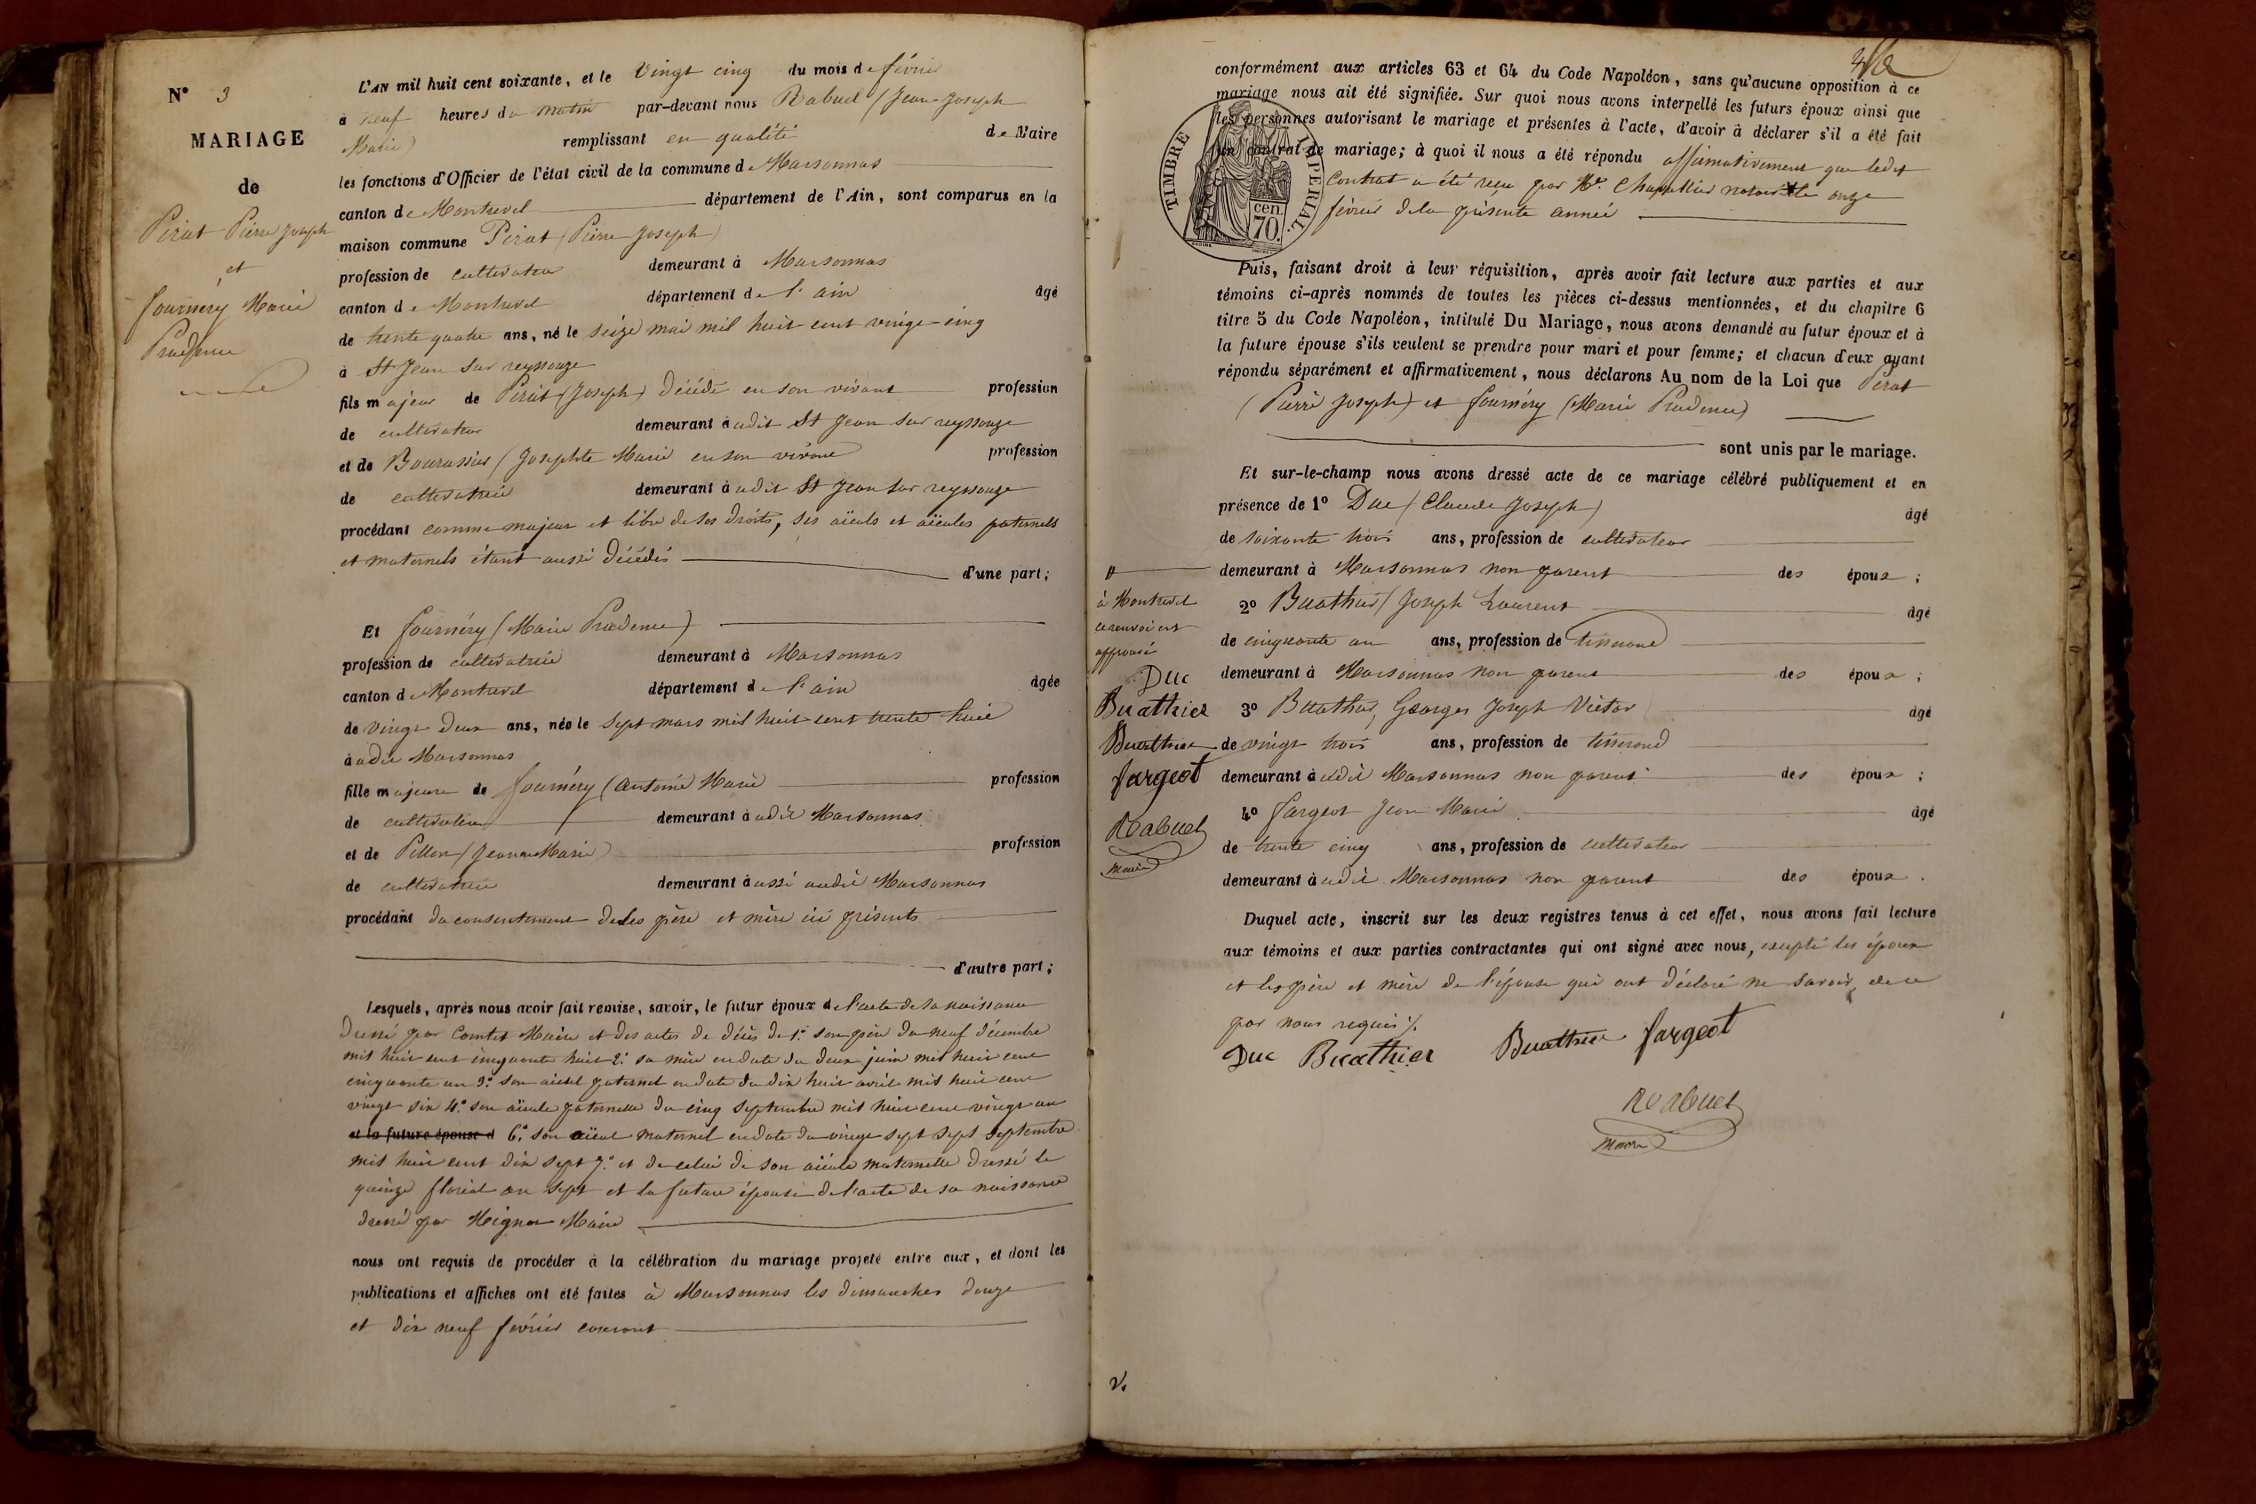 N° 3
MARIAGE
de
Pérat Pierre Joseph
et
fournéry Marie
Prudence
L'AN mil huit cent soixante, et le Vingt cinq du mois de février
à neuf heures du matin par-devant nous Rabuel (Jean Joseph
Marie) remplissant en qualité de Maire
les fonctions d'Officier de l'état civil de la commune de Marsonnas
canton de Montrevel département de l'Ain, sont comparus en la
maison commune Pérat (Pierre Joseph)
profession de cultivateur demeurant à Marsonnas
canton de Montrevel département de l'ain âgé
de trente quatre ans, né le seize mai mil huit cent vingt-cinq
à St Jean sur reyssouze
fils majeur de Pérat (Joseph) décédé en son vivant profession
de cultivateur demeurant audit St Jean sur reyssouze
et de (Josephte Marie en son vivant profession
de cultivatrice demeurant audit St Jean sur reyssouze
procédant comme majeur et libre de ses droits, ses aïeuls et aïeules paternels
et maternels étant aussi décédés d'une part;
Et fournéry (Marie Prudence)
profession de cultivatrice demeurant à Marsonnas
canton de Montrevel département de l'ain âgée
de vingt deux ans, née le sept mars mil huit cent trente huit
à audit Marsonnas
fille majeure de fournéry (Antoine Marie profession
de cultivateur demeurant à audit Marsonnas
et de Pillon (Jeanne Marie) profession
de cultivatrice demeurant aussi audit Marsonnas
procédant du consentement de ses père et mère ici présents
d'autre part;
Lesquels, après nous avoir fait remise, savoir, le futur époux de l'acte de sa naissance
dressé par Comtet Maire et des actes de décès de 1° son père du neuf décembre
mil huit cent cinquante huit 2° sa mère en date du deux juin mil huit cent
cinquante un 3° son aïeul paternel en date du dix huit avril mil huit cent
vingt six 4° son aïeule paternelle du cinq septembre mil huit cent vingt un
et la future épouse d 6° son aïeul maternel en date du vingt sept sept septembre
mil huit cent dix sept 7° et de celui de son aïeule maternelle dressé le
quinze floréal an sept et la future épouse de l'acte de sa naissance
dressé par Maire
nous ont requis de procéder à la célébration du mariage projeté entre eux, et dont les
publications et affiches ont été faites à Marsonnas les dimanches douze
et dix neuf février courant
conformément aux articles 63 et 64 du Code Napoléon, sans qu'aucune opposition à ce
mariage nous ait été signifiée. Sur quoi nous avons interpellé les futurs époux ainsi que
les personnes autorisant le mariage et présentes à l'acte, d'avoir à déclarer s'il a été fait
un contrat de mariage; à quoi il nous a été répondu affirmativement que ledit
Contrat a été reçu par Me. Chapellier notaire le onze
février de la présente année
TIMBRE IMPERIAL
cen.
70.
Puis, faisant droit à leur réquisition, après avoir fait lecture aux parties et aux
témoins ci-après nommés de toutes les pièces ci-dessus mentionnées, et du chapitre 6
titre 5 du Code Napoléon, intitulé Du Mariage, nous avons demandé au futur époux et à
la future épouse s'ils veulent se prendre pour mari et pour femme; et chacun d'eux ayant
répondu séparément et affirmativement, nous déclarons Au nom de la Loi que Pérat
(Pierre Joseph) et fournéry (Marie Prudence)
sont unis par le mariage.
Et sur-le-champ nous avons dressé acte de ce mariage célébré publiquement et en
présence de 1° Duc (Claude Joseph) âgé
de soixante trois ans, profession de cultivateur
demeurant à Marsonnas non parent des époux;
2° Buathier (Joseph Laurent âgé
de cinquante un ans, profession de tisserand
demeurant à Marsonnas non parent des époux;
3° Buathier, Georges Joseph Victor âgé
de vingt trois ans, profession de tisserand
demeurant à audit Marsonnas non parent des époux;
4° fargeot Jean Marie âgé
de trente cinq ans, profession de cultivateur
demeurant à audit Marsonnas non parent des époux.
Duquel acte, inscrit sur les deux registres tenus à cet effet, nous avons fait lecture
aux témoins et aux parties contractantes qui ont signé avec nous, excepté les époux
et les père et mère de l'épouse qui ont déclaré ne savoir, de ce
par nous requis /.
Duc Buathier Buathier fargeot
Rabuel
maire
à Montrevel
ce renvoi est
approuvé
Duc
Buathier
Buathier
fargeot
Rabuel
maire